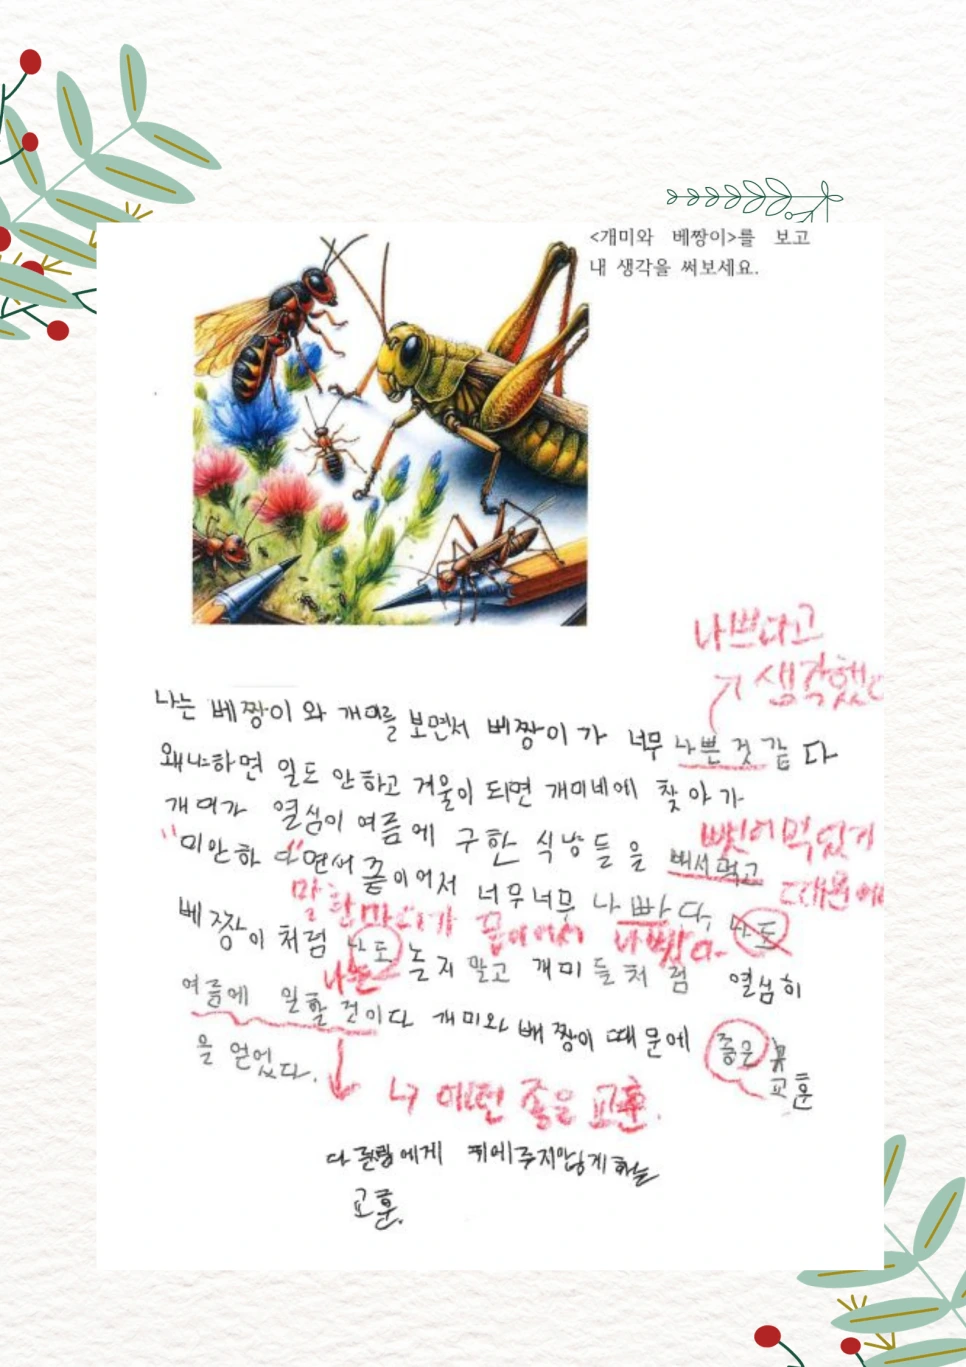 <개미와 베짱이>를 보고
내 생각을 써보세요.
나쁘다고
생각했다
나는 베짱이와 개미를 보면서 베짱이가 너무 나쁜 것 같다
왜냐하면 일도 안하고 겨울이 되면 개미네에 찾아가
개미가 열심이 여름에 구한 식냥들을 빼서먹고
뺏어 먹었기
때문에
"미안하다"면서
너무너무 나빠다 나도
말 한마디가 나빴다.
베짱이처럼 나도 놀지 말고 개미들처럼 열심히
나는
여름에 일할 것이다 개미와 배짱이 때문에 좋은
교훈
을 얻었다.
어떤 좋은 교훈.
교훈.